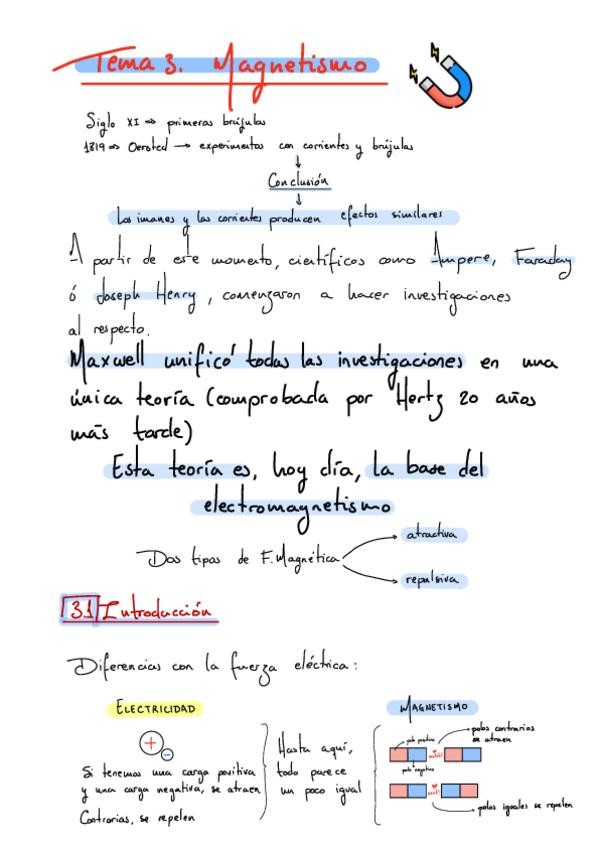 Tema 3. Magnetismo
Siglo XI ⇒ primeras brújulas
1819 ⇒ Oersted → experimentos con corrientes y brújulas
↓
Conclusión
↓
Los imanes y las corrientes producen efectos similares
A partir de este momento, científicos como Ampere, Faraday
ó Joseph Henry, comenzaron a hacer investigaciones
al respecto.
Maxwell unificó todas las investigaciones en una
única teoría (comprobada por Hertz 20 años
más tarde)
Esta teoría es, hoy día, la base del
electromagnetismo
Dos tipos de F. Magnética
atractiva
repulsiva
3.1 Introducción
Diferencias con la fuerza eléctrica:
ELECTRICIDAD
+
-
Si tenemos una carga positiva
y una carga negativa, se atraen
Contrarias, se repelen
Hasta aquí,
todo parece
un poco igual
MAGNETISMO
polo positivo
polo negativo
polos contrarios
se atraen
polos iguales se repelen